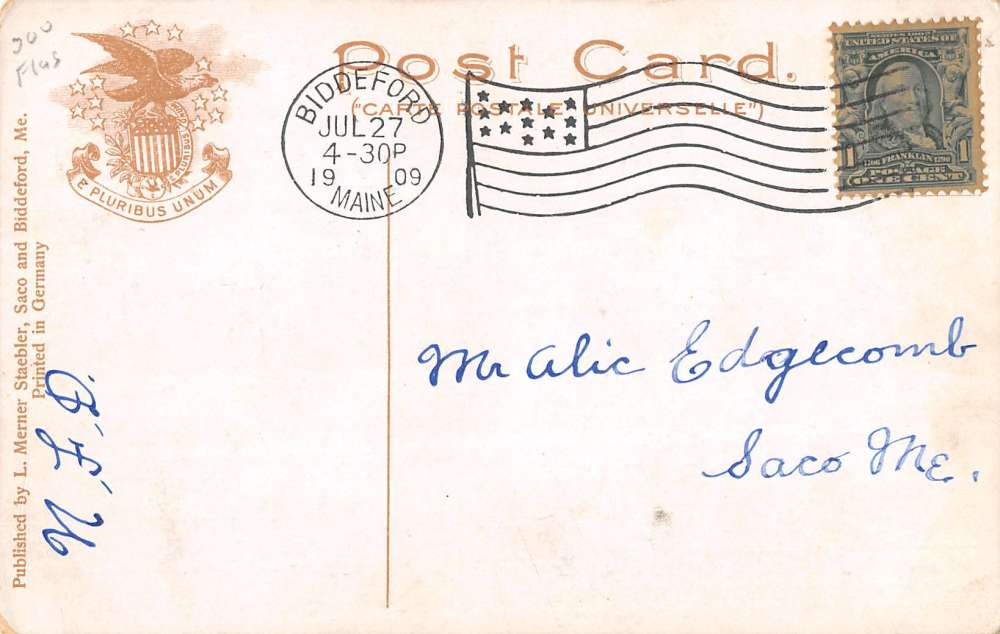 Post Card.
("CARTE POSTALE UNIVERSELLE")
E PLURIBUS UNUM
BIDDEFORD
JUL 27
4-30P
19 09
MAINE
SERIES 1902
UNITED STATES OF
AMERICA
1 FRANKLIN 1
POSTAGE
ONE CENT
Mr Alic Edgecomb
Saco Me.
Published by L. Merner Staebler, Saco and Biddeford, Me.
Printed in Germany